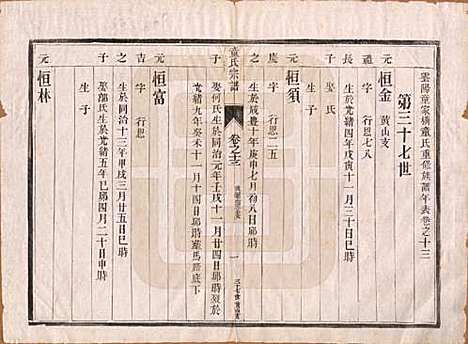 雲陽童家橫童氏重修族譜年表卷之十三
第三十七世
元 恒金 黃山支
禮 字 行恩七八
長 生於光緒四年戊寅十一月三十日卯時
子 娶 氏
生 子
元 恒須
慶 字 行恩二五
之 生於咸豐十年庚申七月初八日卯時
子 娶何氏生於同治元年壬戌十一月廿四日卯時
光緒九年癸未十一月十四日卯時葬馬路底下
童氏宗譜
卷之十三
一
元 恒富
吉 字 行恩
之 生於同治十三年甲戌三月廿五日巳時
子 娶鄒氏生於光緒五年己卯四月二十日寅時
生 子
元 恒林